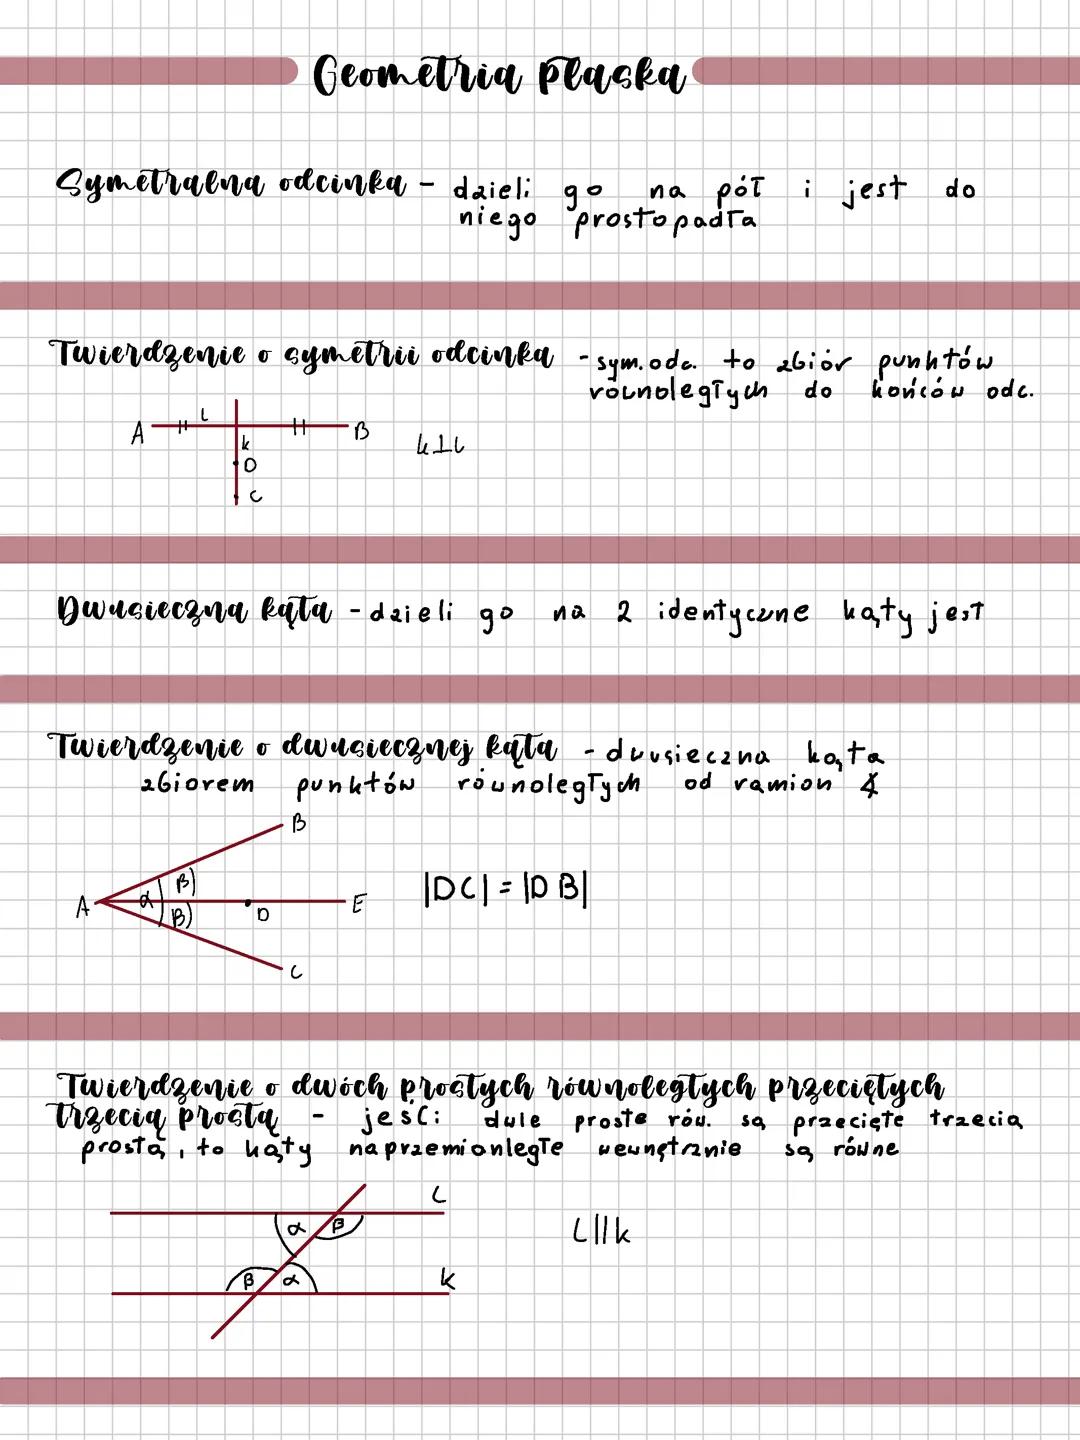 Geometria płaska
Symetralna odcinka - dzieli go na pół i jest do
niego prostopadła
Twierdzenie o symetrii odcinka - sym. odc. to zbiór punktów
równoległych do końców odc.
A l B
k
D
C
k⊥l
Dwusieczna kąta - dzieli go na 2 identyczne kąty jest
Twierdzenie o dwusiecznej kąta - dwusieczna kąta
zbiorem punktów równoległych od ramion ∡
B
A α β β D E
C
|DC| = |DB|
Twierdzenie o dwóch prostych równoległych przeciętych
trzecią prostą - jeść: dwie proste rów. są przecięte trzecią
prostą, to kąty naprzemianległe wewnętrznie są równe
L
α β
β α k
L||k